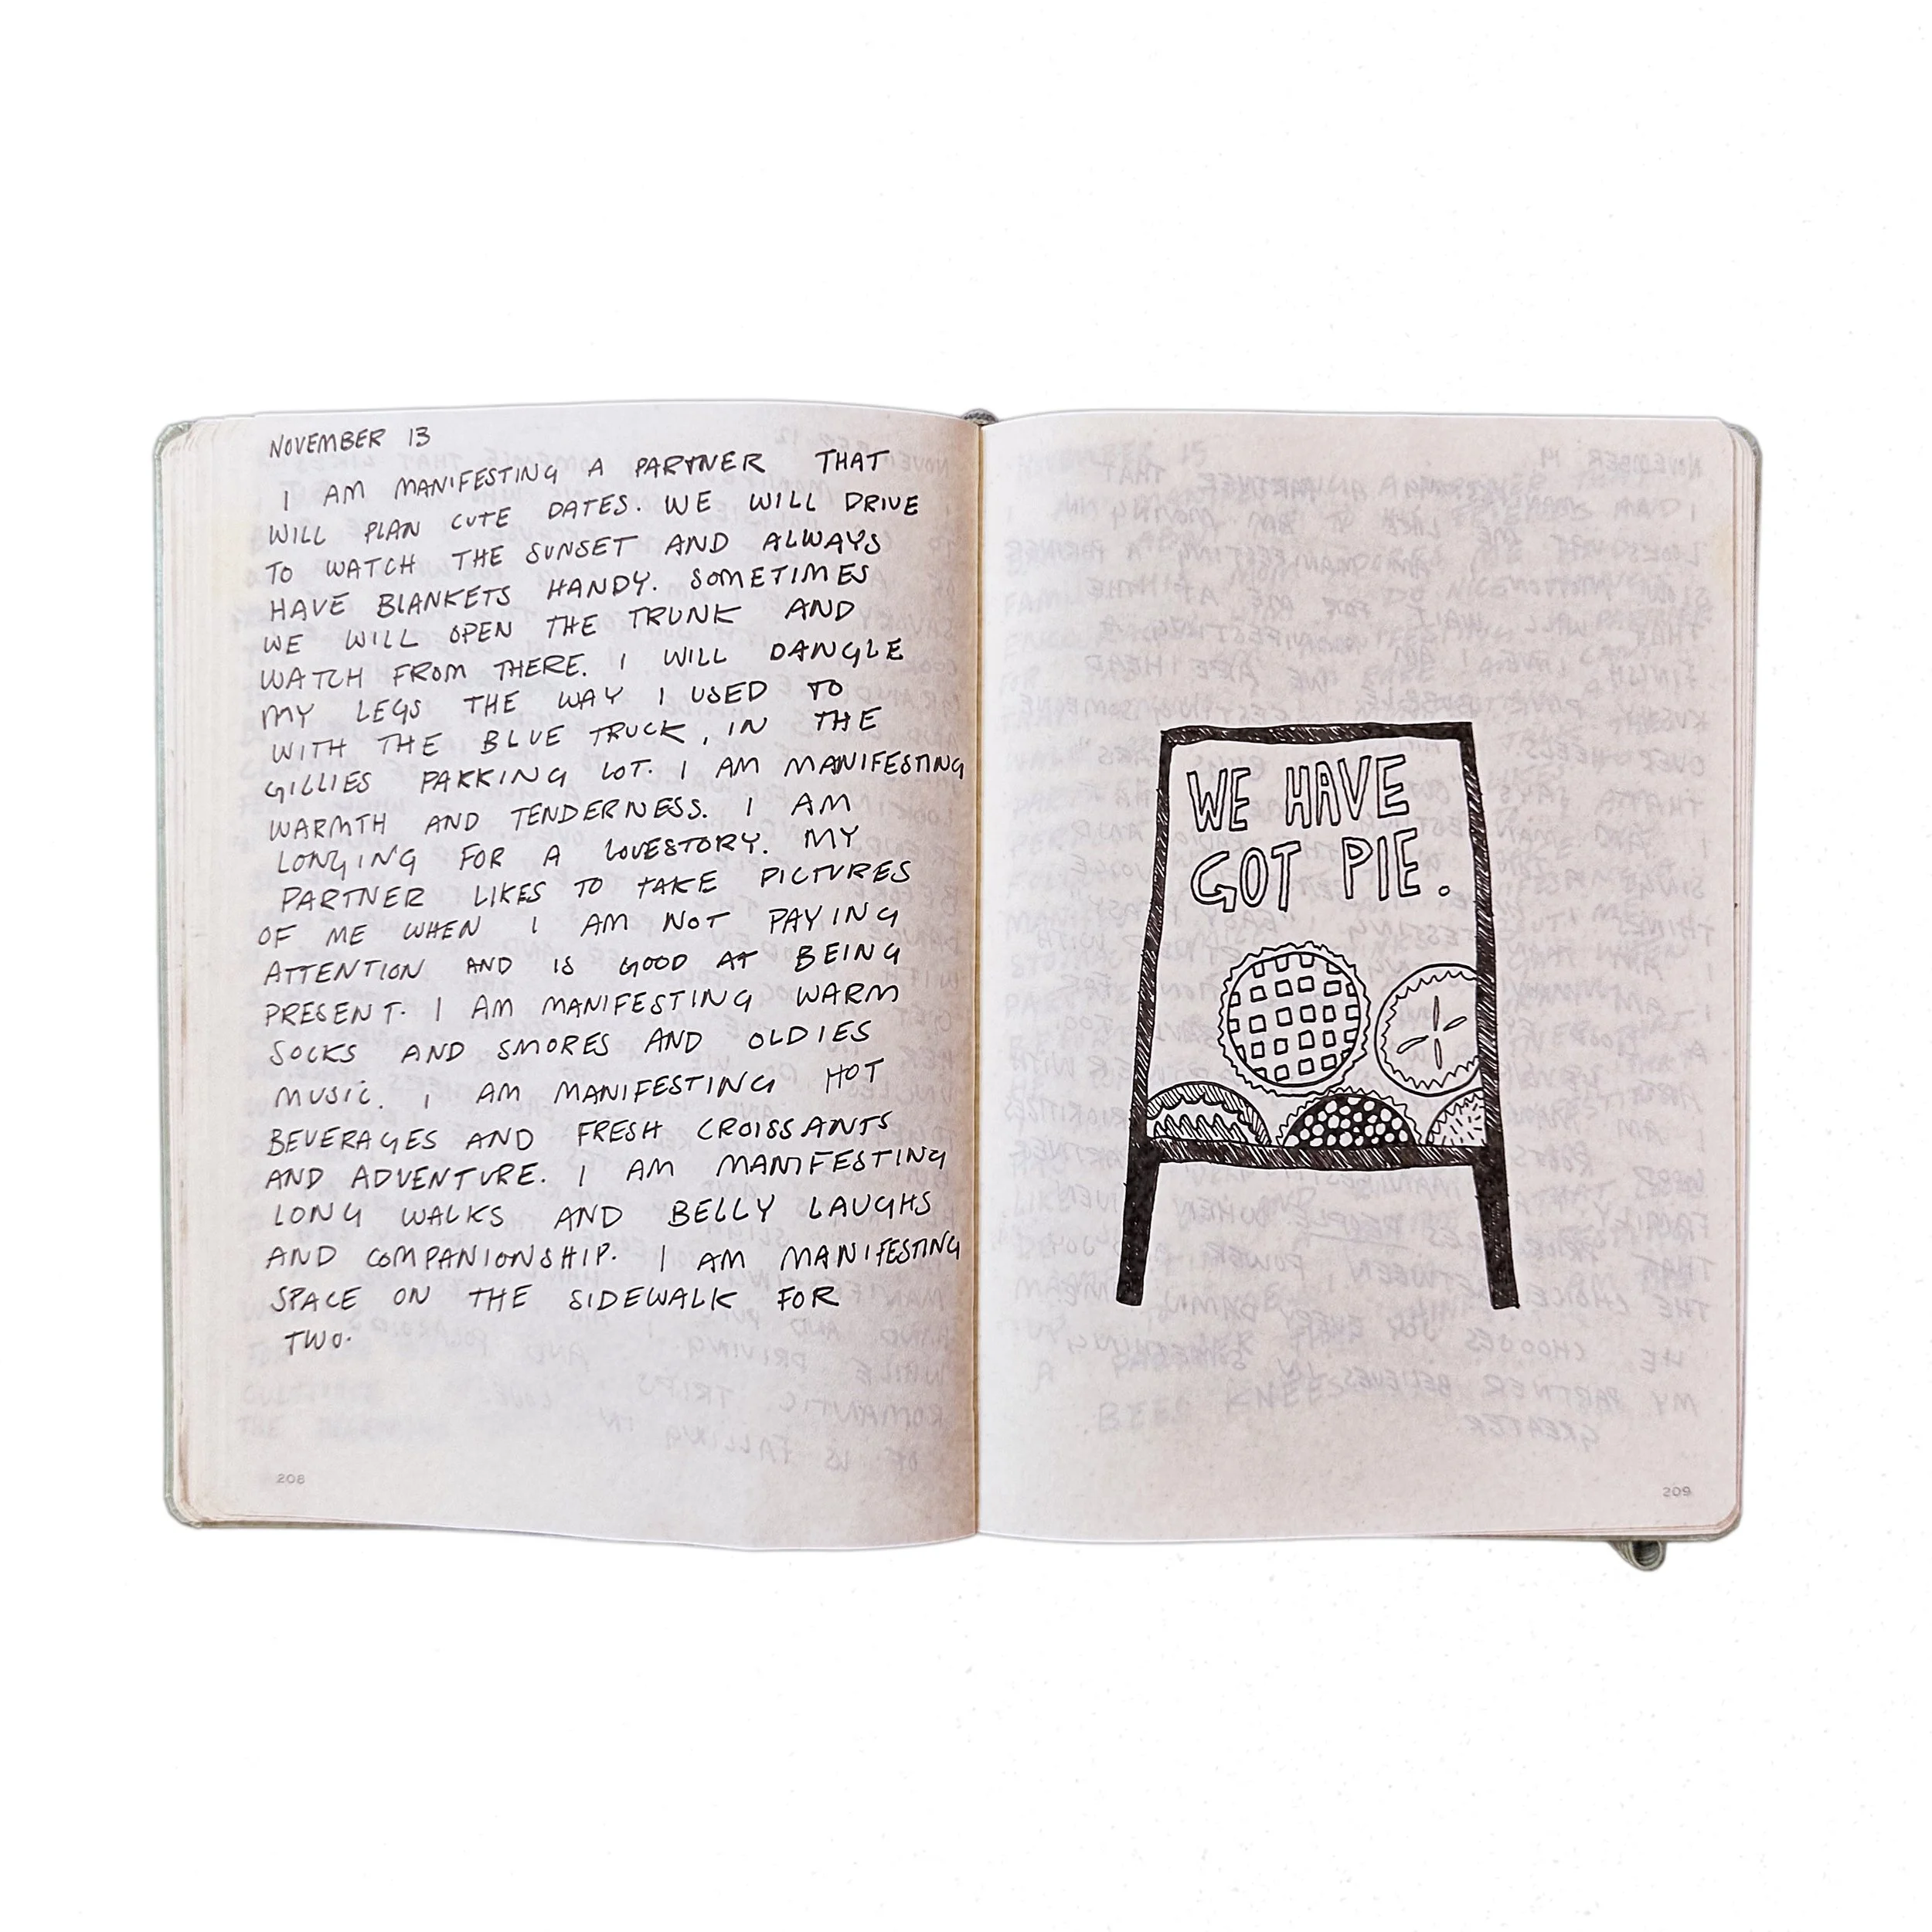 NOVEMBER 13
I AM MANIFESTING A PARTNER THAT
WILL PLAN CUTE DATES. WE WILL DRIVE
TO WATCH THE SUNSET AND ALWAYS
HAVE BLANKETS HANDY. SOMETIMES
WE WILL OPEN THE TRUNK AND
WATCH FROM THERE. I WILL DANGLE
MY LEGS THE WAY I USED TO
WITH THE BLUE TRUCK, IN THE
GILLIES PARKING LOT. I AM MANIFESTING
WARMTH AND TENDERNESS. I AM
LONGING FOR A LOVESTORY. MY
PARTNER LIKES TO TAKE PICTURES
OF ME WHEN I AM NOT PAYING
ATTENTION AND IS GOOD AT BEING
PRESENT. I AM MANIFESTING WARM
SOCKS AND SMORES AND OLDIES
MUSIC. I AM MANIFESTING HOT
BEVERAGES AND FRESH CROISSANTS
AND ADVENTURE. I AM MANIFESTING
LONG WALKS AND BELLY LAUGHS
AND COMPANIONSHIP. I AM MANIFESTING
SPACE ON THE SIDEWALK FOR
TWO.
208
WE HAVE
GOT PIE.
209